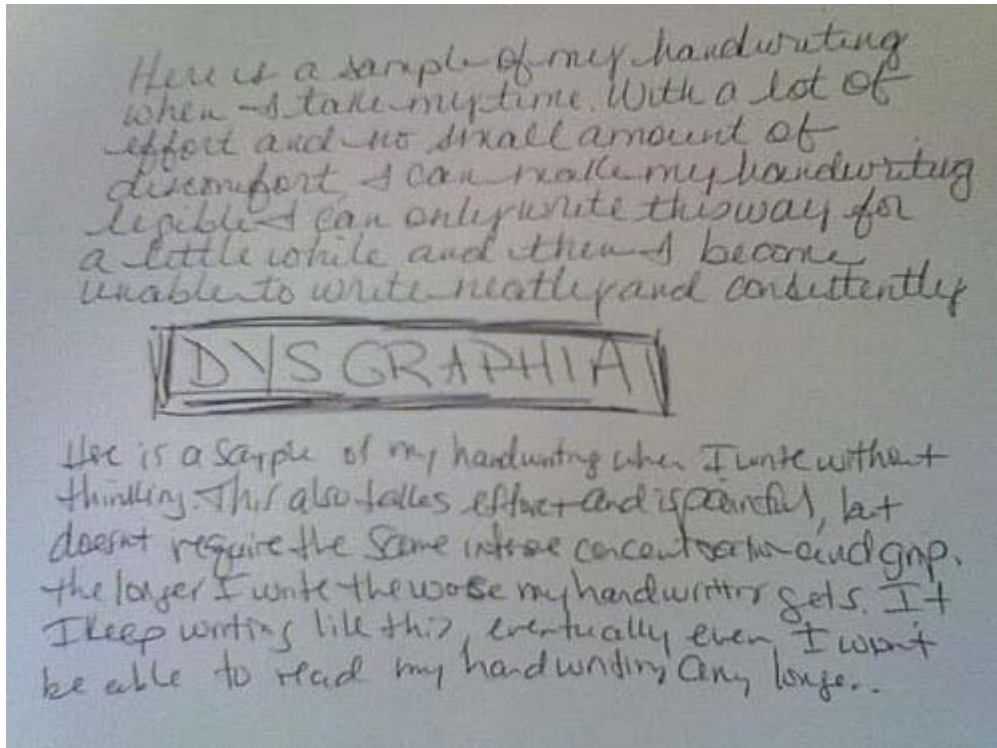 Here is a sample of my handwriting
when I take my time. With a lot of
effort and no small amount of
discomfort I can make my handwriting
legible I can only write this way for
a little while and then I become
unable to write neatly and consistently
DYSGRAPHIA
Here is a sample of my handwriting when I write without
thinking. This also takes effort and is painful, but
doesnt require the same intense concentration and grip.
the longer I write the worse my handwriting gets. If
I keep writing like this, eventually even I wont
be able to read my handwriting any longer..